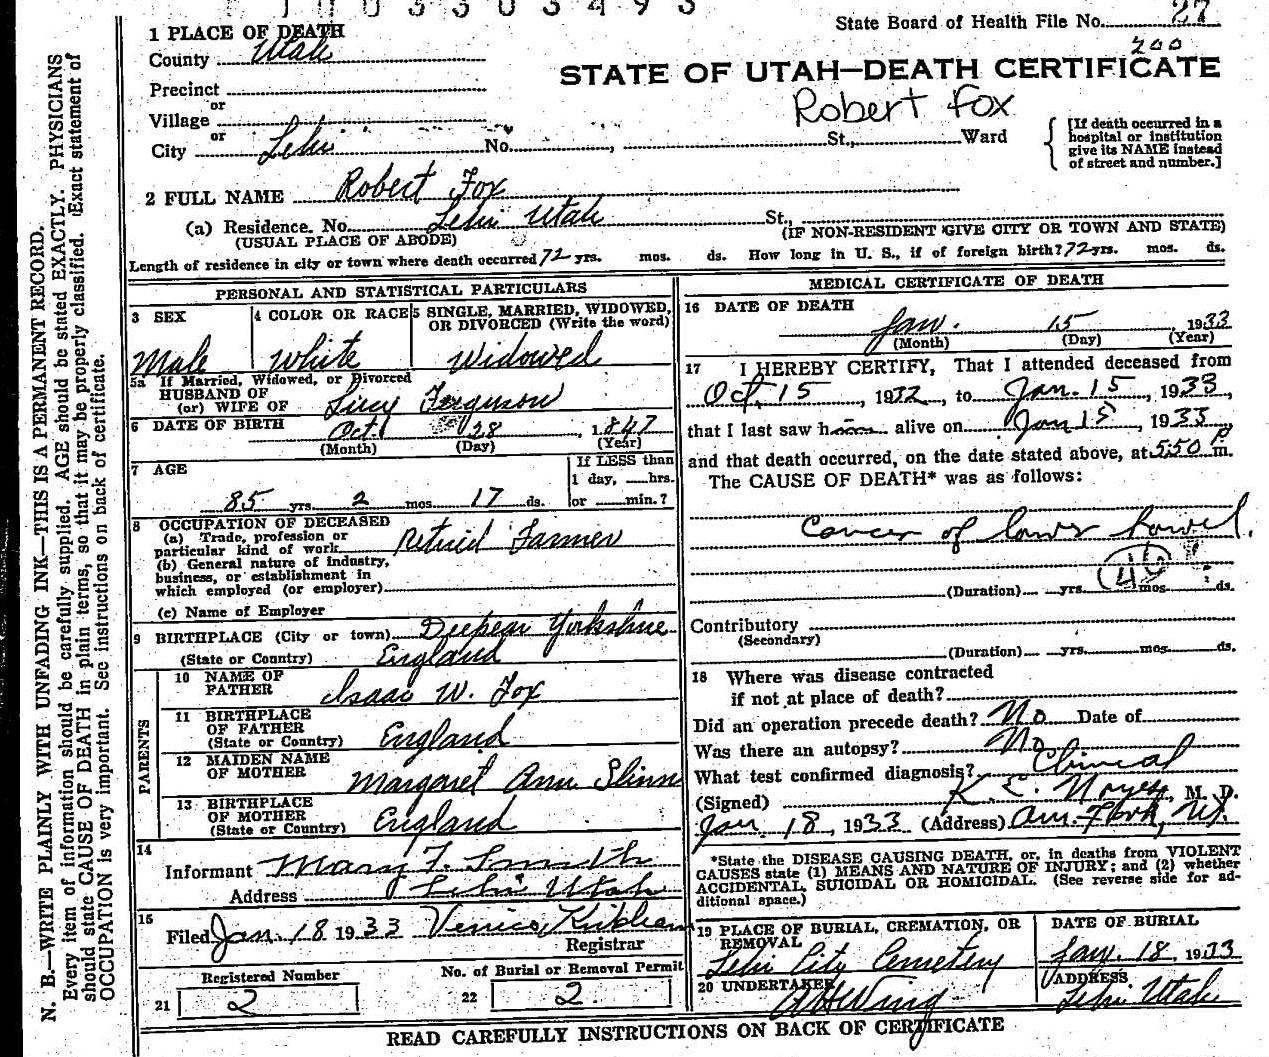 1003303493
State Board of Health File No. 27
200
1 PLACE OF DEATH
County Utah
STATE OF UTAH—DEATH CERTIFICATE
Precinct
or
Village
Robert Fox
or
City Lehi No. , St., Ward
[If death occurred in a
hospital or institution
give its NAME instead
of street and number.]
2 FULL NAME Robert Fox
(a) Residence. No. Lehi Utah St.,
(USUAL PLACE OF ABODE) (IF NON-RESIDENT GIVE CITY OR TOWN AND STATE)
Length of residence in city or town where death occurred 72 yrs. mos. ds. How long in U. S., if of foreign birth? 72 yrs. mos. ds.
PERSONAL AND STATISTICAL PARTICULARS
3 SEX
Male
4 COLOR OR RACE
White
5 SINGLE, MARRIED, WIDOWED,
OR DIVORCED (Write the word)
Widowed
5a If Married, Widowed, or Divorced
HUSBAND OF
(or) WIFE OF Lucy Ferguson
6 DATE OF BIRTH Oct. 28, 1847
(Month) (Day) (Year)
7 AGE
85 yrs. 2 mos. 17 ds.
If LESS than
1 day, hrs.
or min.?
8 OCCUPATION OF DECEASED
(a) Trade, profession or
particular kind of work Retired Farmer
(b) General nature of industry,
business, or establishment in
which employed (or employer)
(c) Name of Employer
9 BIRTHPLACE (City or town) Deepcar Yorkshire
(State or Country) England
PARENTS
10 NAME OF
FATHER Isaac W. Fox
11 BIRTHPLACE
OF FATHER
(State or Country) England
12 MAIDEN NAME
OF MOTHER Margaret Ann Slinn
13 BIRTHPLACE
OF MOTHER
(State or Country) England
14
Informant Mary F. Smith
Address Lehi Utah
15
Filed Jan. 18 1933 Venice Kirkham
Registrar
Registered Number
21 2
No. of Burial or Removal Permit
22 2
MEDICAL CERTIFICATE OF DEATH
16 DATE OF DEATH
Jan. 15, 1933
(Month) (Day) (Year)
17 I HEREBY CERTIFY, That I attended deceased from
Oct. 15, 1932, to Jan. 15, 1933,
that I last saw him alive on Jan 15, 1933,
and that death occurred, on the date stated above, at 5:50 P m.
The CAUSE OF DEATH* was as follows:
Cancer of lower bowel.
46
(Duration) yrs. mos. ds.
Contributory
(Secondary)
(Duration) yrs. mos. ds.
18 Where was disease contracted
if not at place of death?
Did an operation precede death? No Date of
Was there an autopsy? No
What test confirmed diagnosis? Clinical
(Signed) K. E. Noyes, M. D.
Jan. 18, 1933 (Address) Am. Fork, Ut.
*State the DISEASE CAUSING DEATH, or, in deaths from VIOLENT
CAUSES state (1) MEANS AND NATURE OF INJURY; and (2) whether
ACCIDENTAL, SUICIDAL OR HOMICIDAL. (See reverse side for ad-
ditional space.)
19 PLACE OF BURIAL, CREMATION, OR
REMOVAL
Lehi City Cemetery
DATE OF BURIAL
Jan. 18, 1933
20 UNDERTAKER
A H Wing
ADDRESS
Lehi Utah
READ CAREFULLY INSTRUCTIONS ON BACK OF CERTIFICATE
N. B.—WRITE PLAINLY WITH UNFADING INK—THIS IS A PERMANENT RECORD.
Every item of information should be carefully supplied. AGE should be stated EXACTLY. PHYSICIANS
should state CAUSE OF DEATH in plain terms, so that it may be properly classified. Exact statement of
OCCUPATION is very important. See instructions on back of certificate.